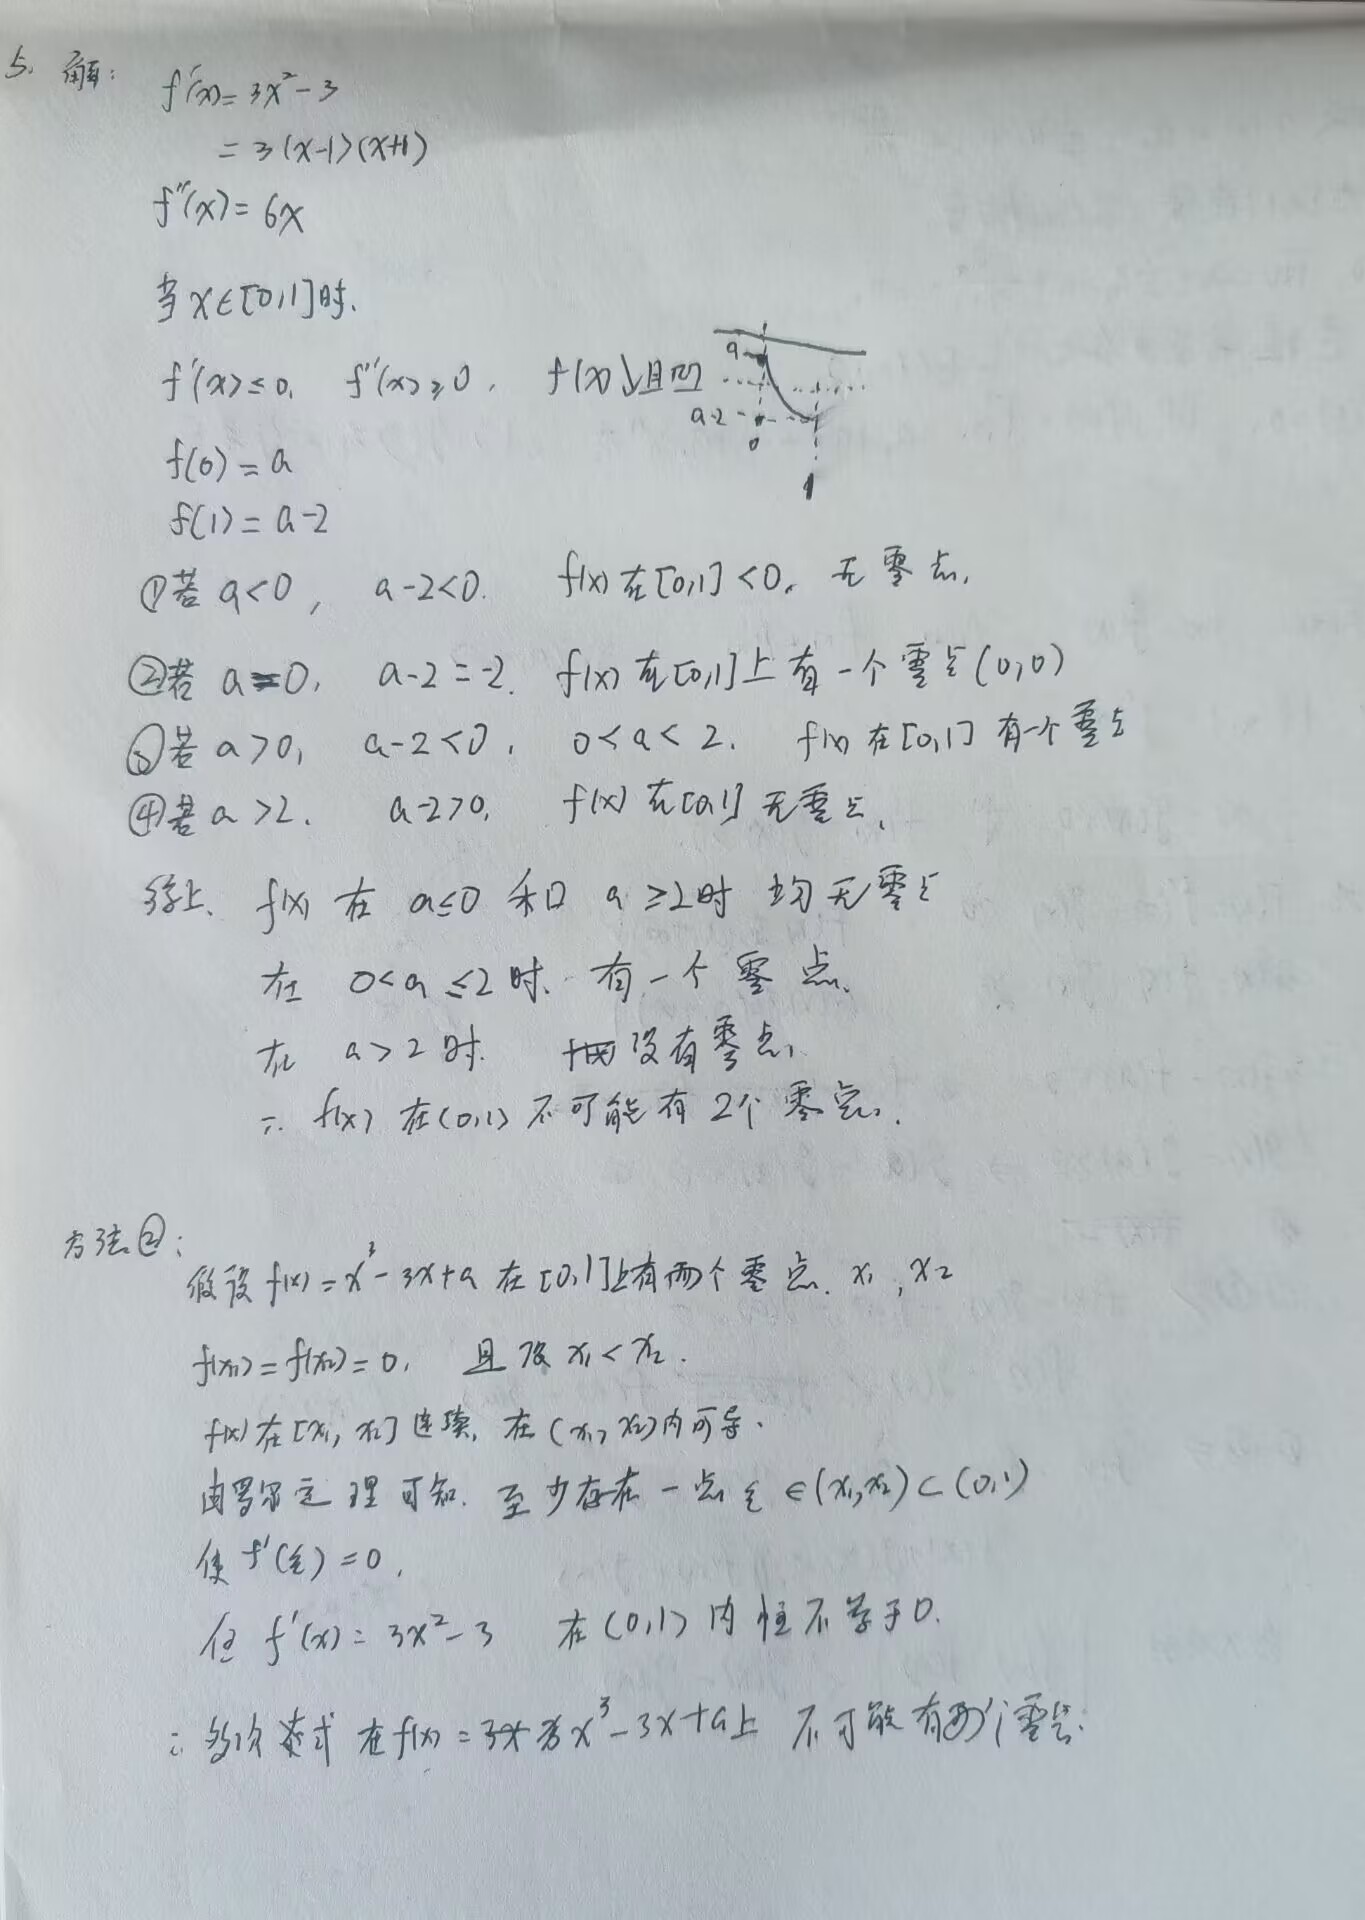 5. 解:
f'(x)=3x²-3
=3(x-1)(x+1)
f''(x)=6x
当x∈[0,1]时.
f'(x)≤0, f''(x)≥0, f(x)↓且凹
a
a-2
0
1
f(0)=a
f(1)=a-2
①若a<0, a-2<0. f(x)在[0,1]<0, 无零点,
②若a=0, a-2=-2. f(x)在[0,1]上有一个零点(0,0)
③若a>0, a-2<0, 0<a<2. f(x)在[0,1]有一个零点
④若a>2. a-2>0, f(x)在[0,1]无零点,
综上, f(x)在a≤0和a≥2时 均无零点
在0<a≤2时. 有一个零点.
在a>2时. 没有零点,
∴f(x)在(0,1)不可能有2个零点.
方法②:
假设f(x)=x³-3x+a在[0,1]上有两个零点. x₁, x₂
f(x₁)=f(x₂)=0, 且设x₁<x₂.
f(x)在[x₁,x₂]连续, 在(x₁,x₂)内可导.
由罗尔定理可知. 至少存在一点ξ∈(x₁,x₂)⊂(0,1)
使f'(ξ)=0,
但f'(x)=3x²-3 在(0,1)内恒不等于0.
∴多次表式在f(x)=x³-3x+a上 不可能有两个零点.